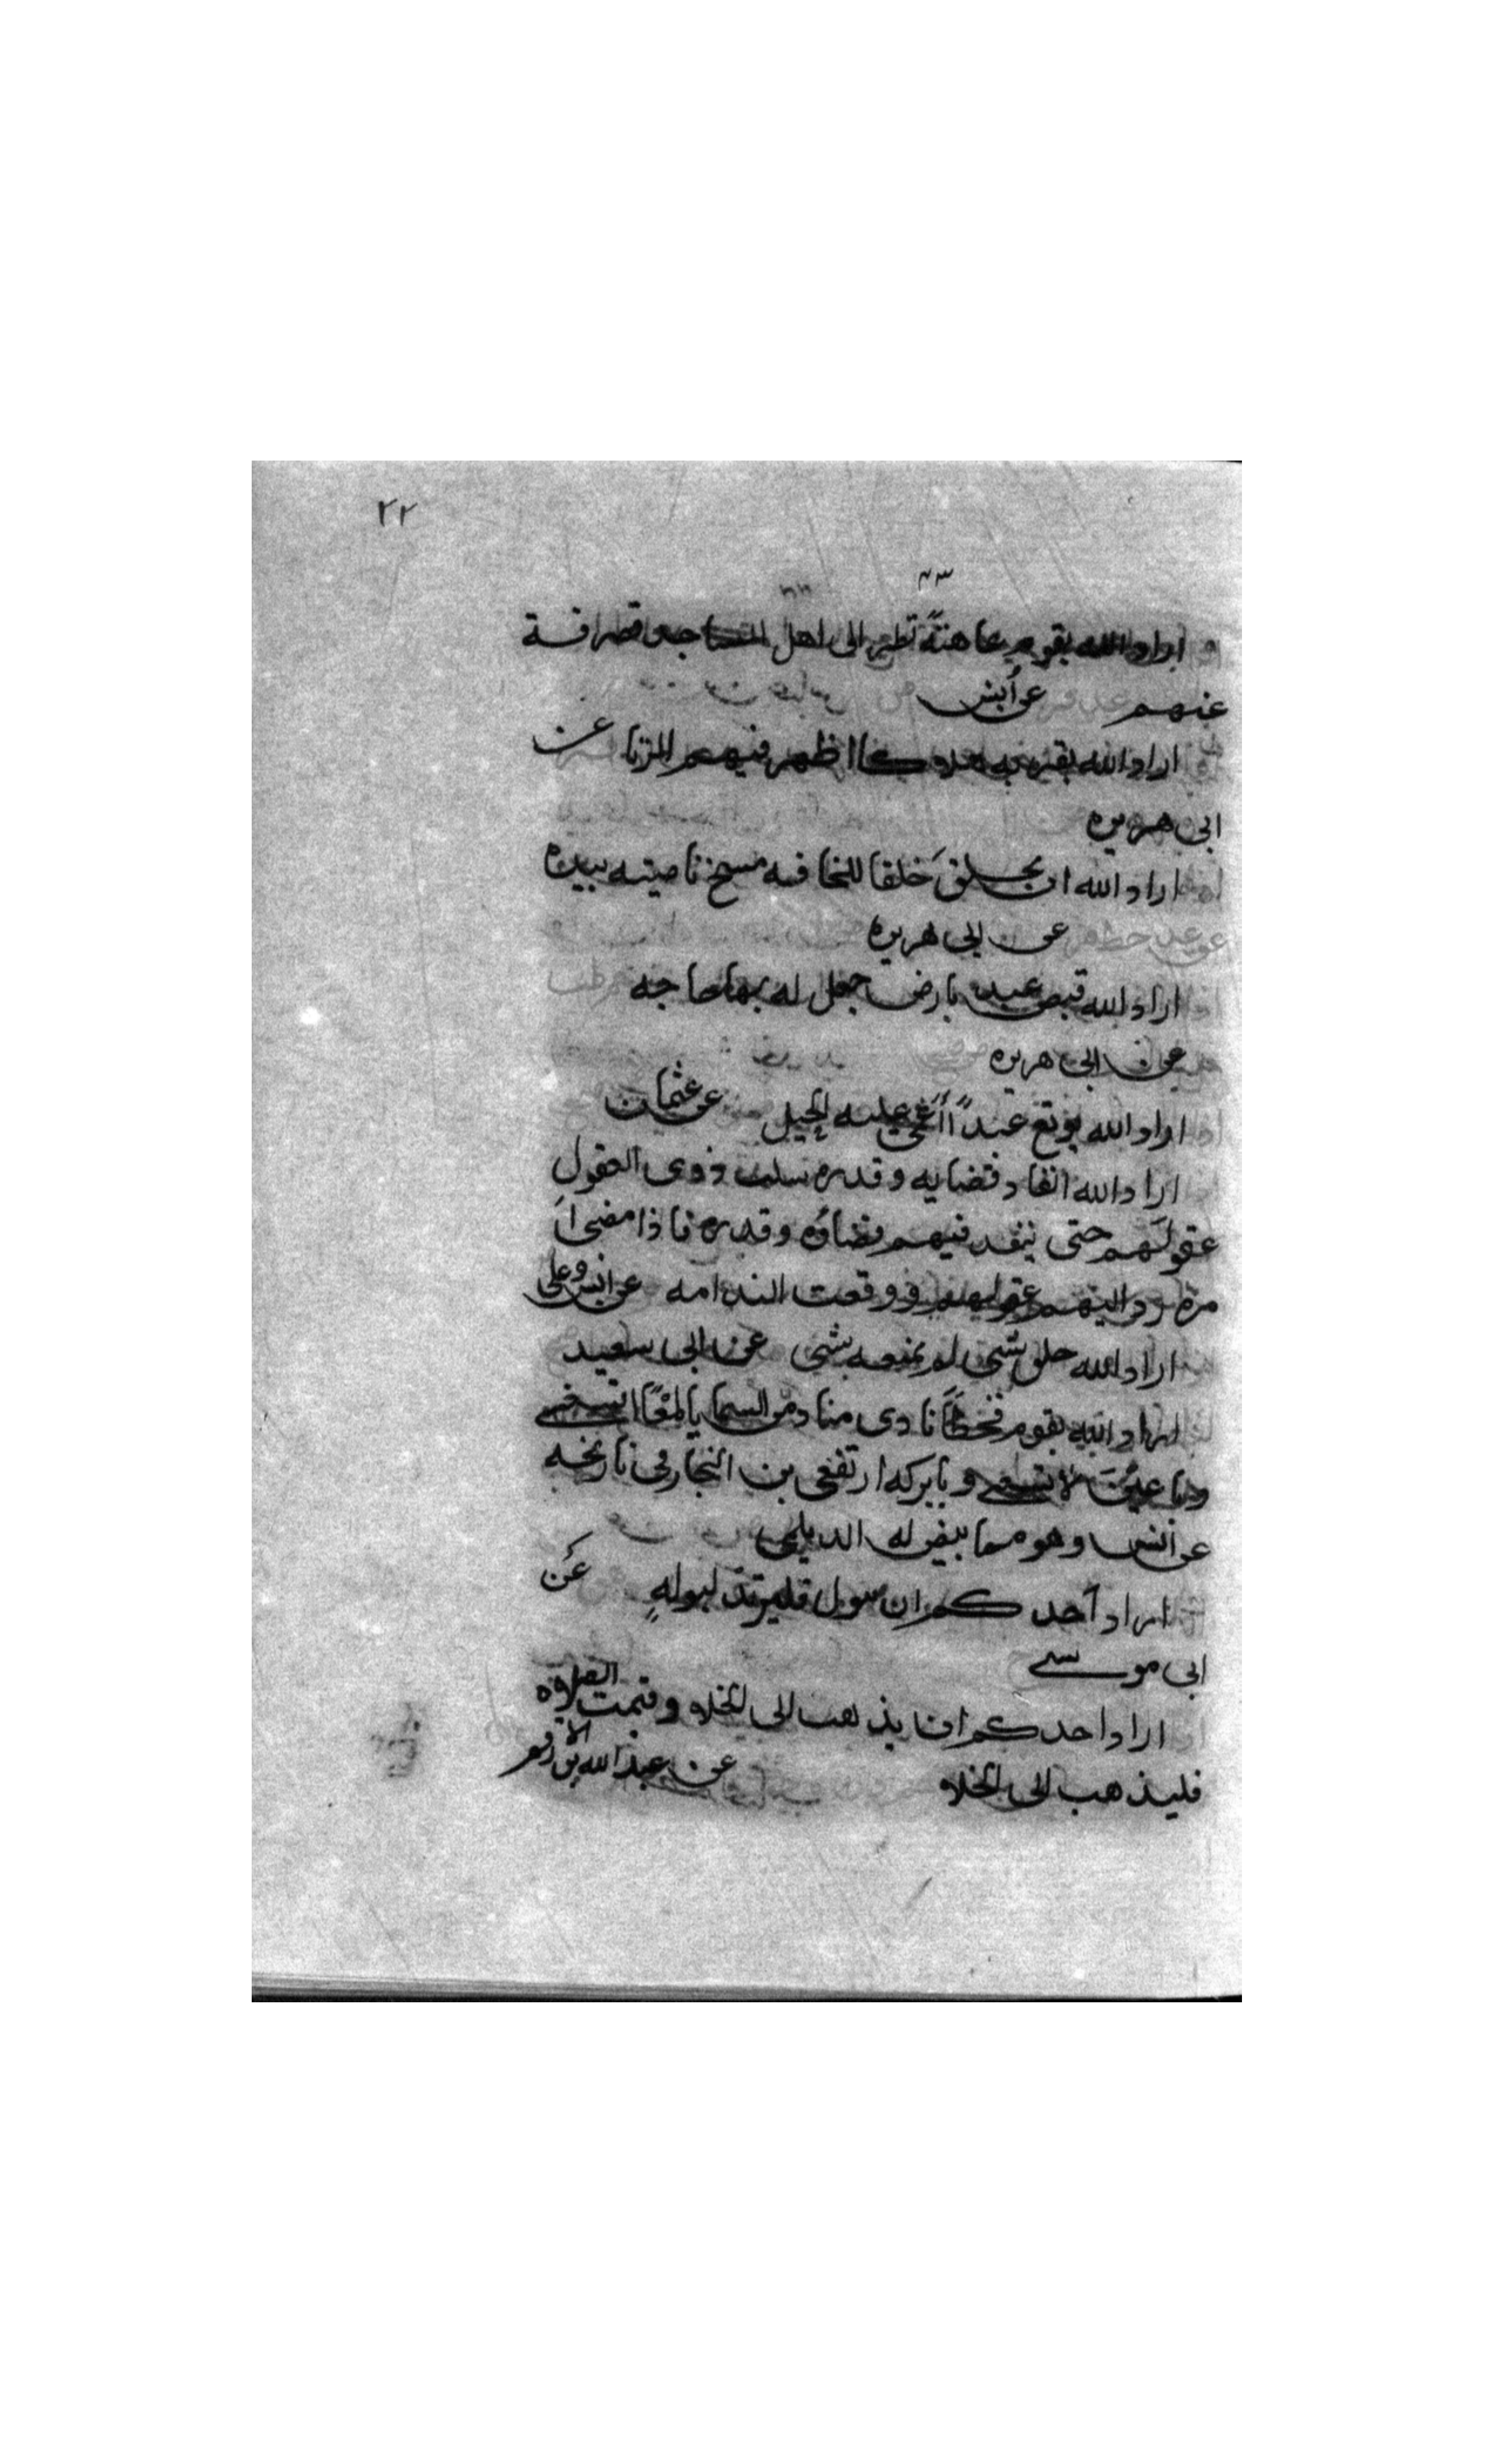 ٢٢
اراد الله بقوم عاهة نظر الى اهل المساجد فصرفة
عنهم عن أنس
اراد الله بقرية هلاكا اظهر فيهم الزنا عن
ابى هريره
اراد الله ان يخلق خلقا للخلافه مسح ناصيته بيده
عن ابى هريره
اراد الله قبض عبد بارض جعل له بها حاجه
عن ابى هريره
اراد الله يوتغ عبدًا أعمى عليه الحيل عن عثمان
اراد الله انفاد قضايه وقدره سلب ذوى العقول
عقولَهم حتى ينفد فيهم قضاؤه وقدره فاذا مضى اَ
مره رد اليهم عقولهم ووقعت الندامه عن انس وعلى
اراد الله خلق شى لم يمنعه شى عن ابى سعيد
اراد الله بقوم قحطاً نادى مناد من السما يا امعا اتسعى
ويا عين لا تشبعى ويا بركه ارتفعى بن النجار فى تاريخه
عن انس وهو مما بيض له الديلمى
اراد أحدكم ان يبول فليرتد لبوله عن
ابى موسى
اراد احدكم ان يذهب الى الخلاء وقيمت الصلاة
فليذهب الى الخلاء عن عبد الله بن الارقم